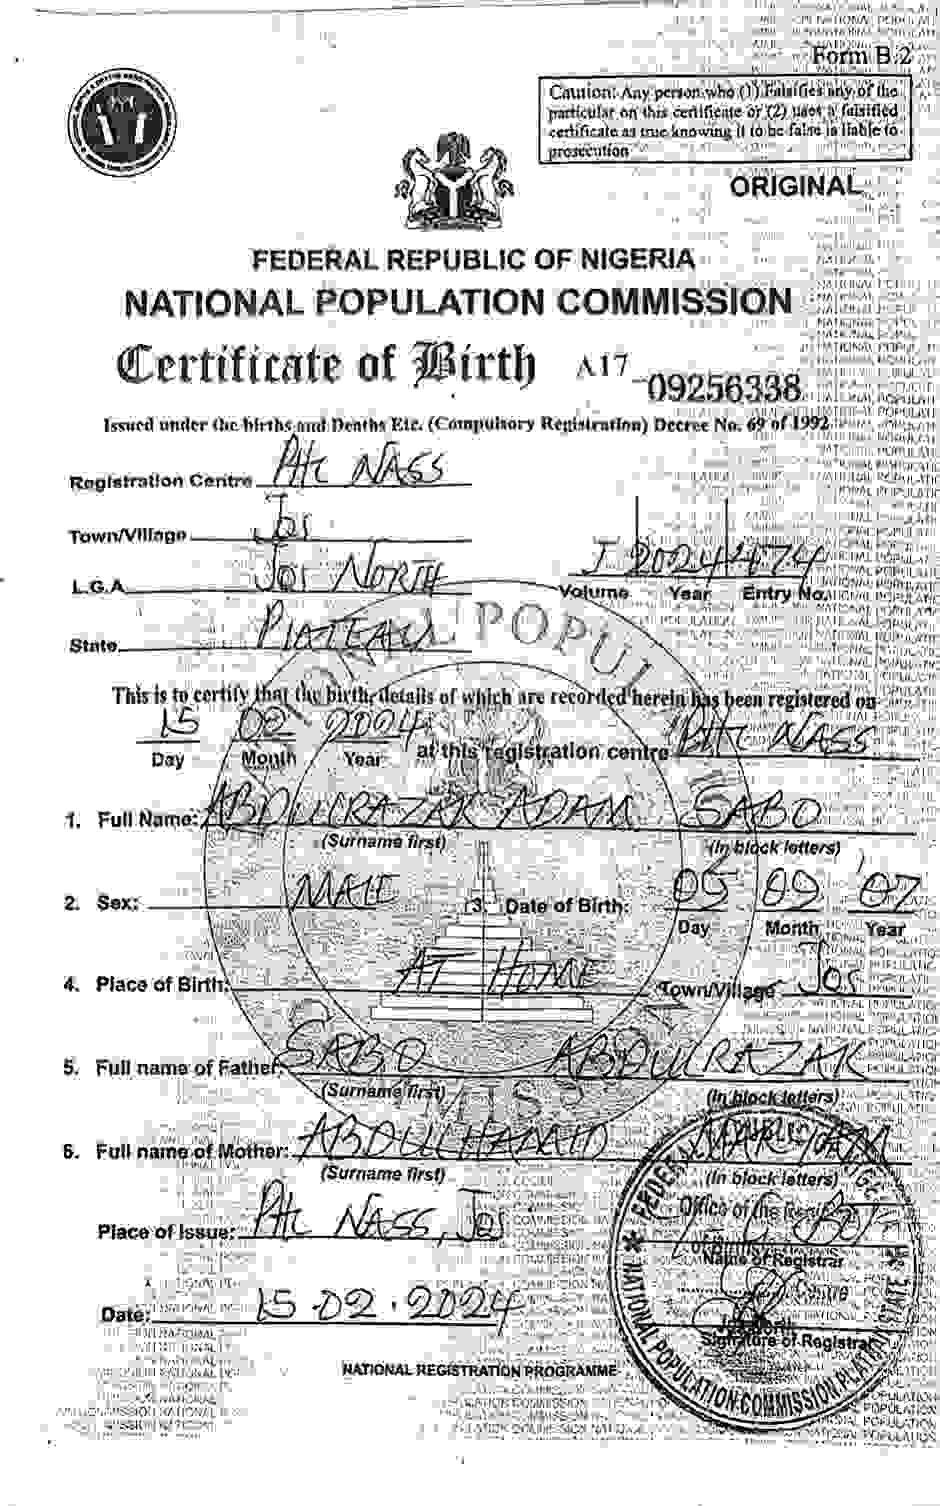 Form B.2
Caution: Any person who (1) Falsifies any of the
particular on this certificate or (2) uses a falsified
certificate as true knowing it to be false is liable to
prosecution
ORIGINAL
FEDERAL REPUBLIC OF NIGERIA
NATIONAL POPULATION COMMISSION
Certificate of Birth A17 09256338
Issued under the births and Deaths Etc. (Compulsory Registration) Decree No. 69 of 1992
Registration Centre PHC NASS
Town/Village Jos
L.G.A. Jos NORTH
I 2024 474
Volume Year Entry No.
State PLATEAU
This is to certify that the birth, details of which are recorded herein has been registered on
15 02 2024 at this registration centre PHC NASS
Day Month Year
1. Full Name: ABDULRAZAK ADAM SABO
(Surname first) (In block letters)
2. Sex: MALE 3. Date of Birth: 05 09 '07
Day Month Year
4. Place of Birth: AT HOME Town/Village Jos
5. Full name of Father: SABO ABDULRAZAK
(Surname first) (In block letters)
6. Full name of Mother: ABDULHAMID
(Surname first) (In block letters)
Place of Issue: PHC NASS, Jos
Name of Registrar
Date: 15.02.2024
Signature of Registrar
NATIONAL REGISTRATION PROGRAMME
NATIONAL POPULATION COMMISSION PLATEAU STATE